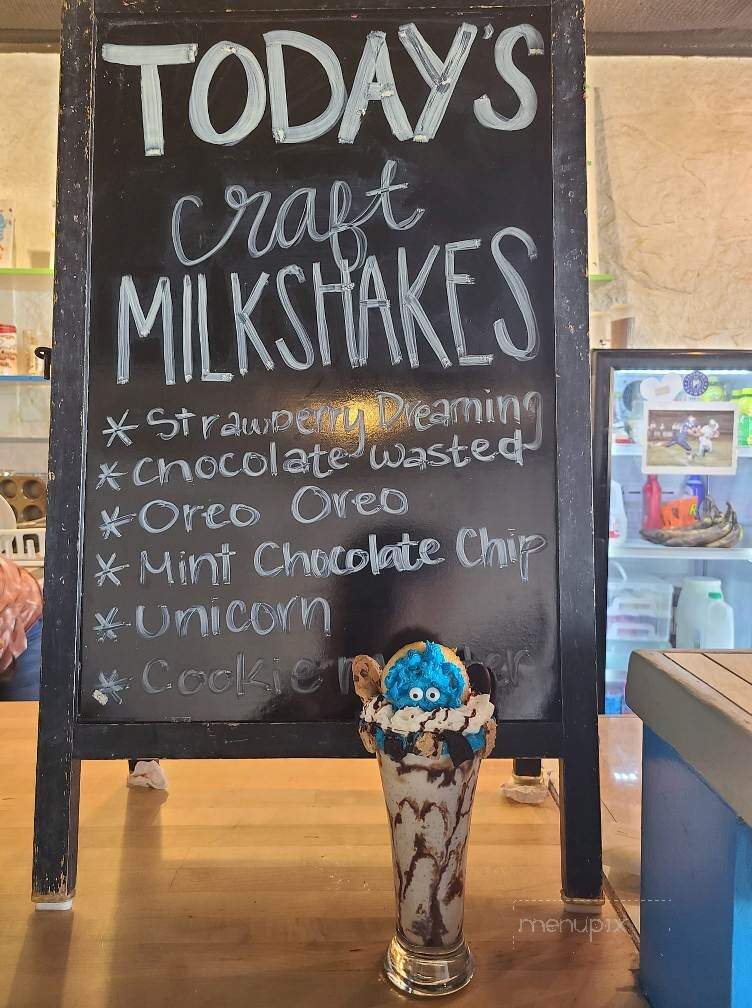 TODAY'S
craft
MILKSHAKES
* Strawberry Dreaming
* Chocolate Wasted
* Oreo Oreo
* Mint Chocolate Chip
* Unicorn
* Cookie
menupix